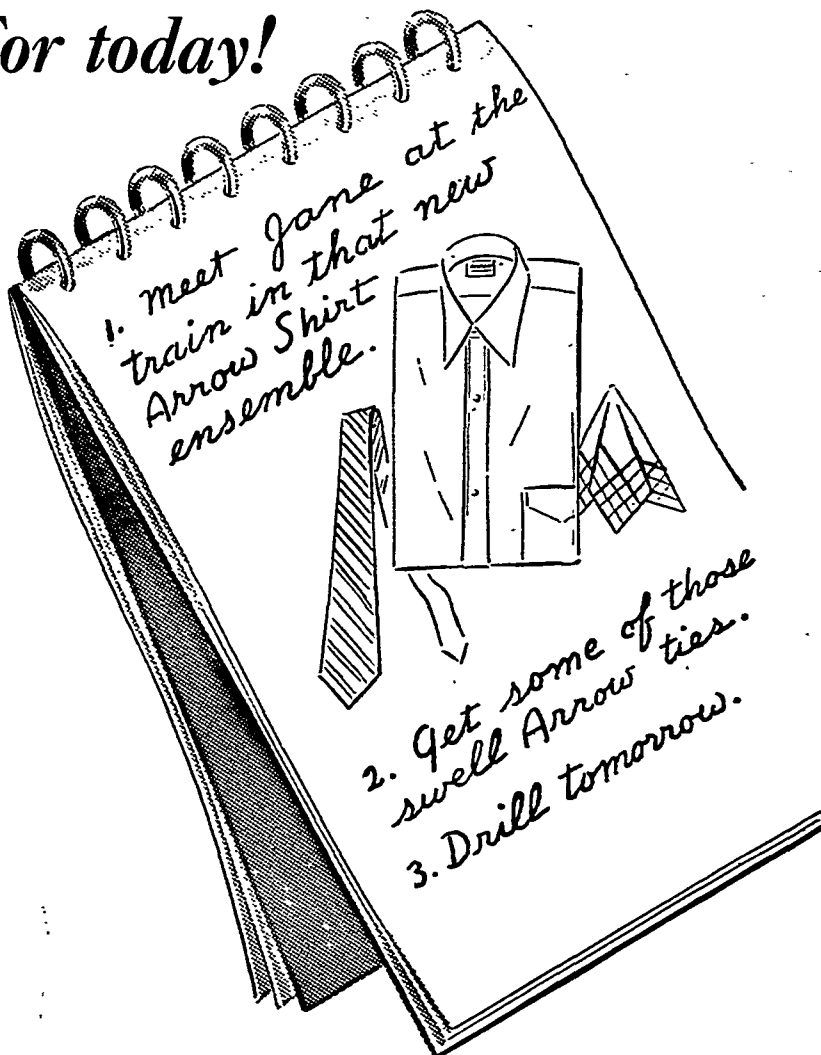 or today!
1. Meet Jane at the
train in that new
Arrow Shirt
ensemble.
2. Get some of those
swell Arrow ties.
3. Drill tomorrow.